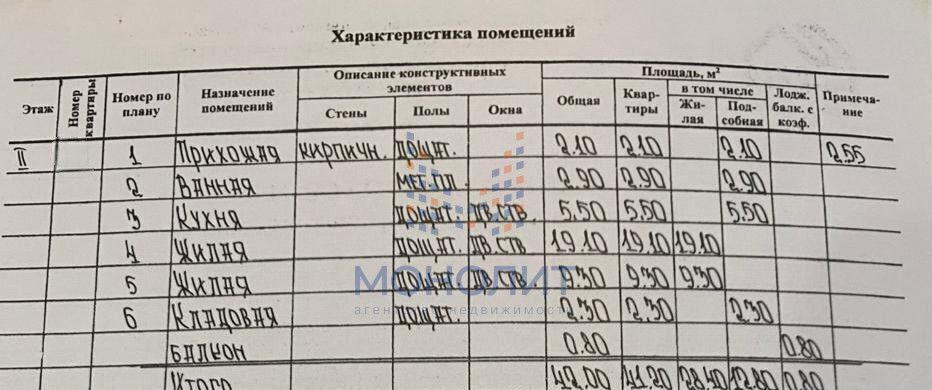 Характеристика помещений
Этаж Номер квартиры Номер по плану Назначение помещений Описание конструктивных элементов Площадь, м² Примеча-ние
Стены Полы Окна Общая Квар-тиры в том числе Лодж. балк. с коэф.
Жи-лая Под-собная
II 1 Прихожая кирпичн. дощат. 2.10 2.10 2.10 2.55
2 Ванная мет.пл. 2.90 2.90 2.90
3 Кухня дощат. дв.ств. 5.50 5.50 5.50
4 Жилая дощат. дв.ств 19.10 19.10 19.10
5 Жилая дощат. дв.ств. 9.30 9.30 9.30
МОНОЛИТ
агентство недвижимости
6 Кладовая дощат. 2.30 2.30 2.30
Балкон 0.80 0.80
Итого 42.00 41.20 28.40 12.80 0.80